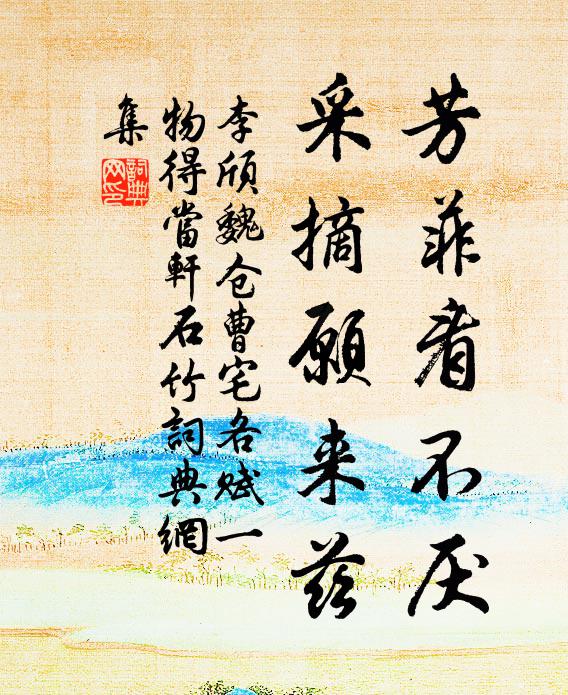 芳菲看不厌
采摘愿来兹
李颀魏仓曹宅各赋一
物得當軒石竹詞典網
集
詞典网印